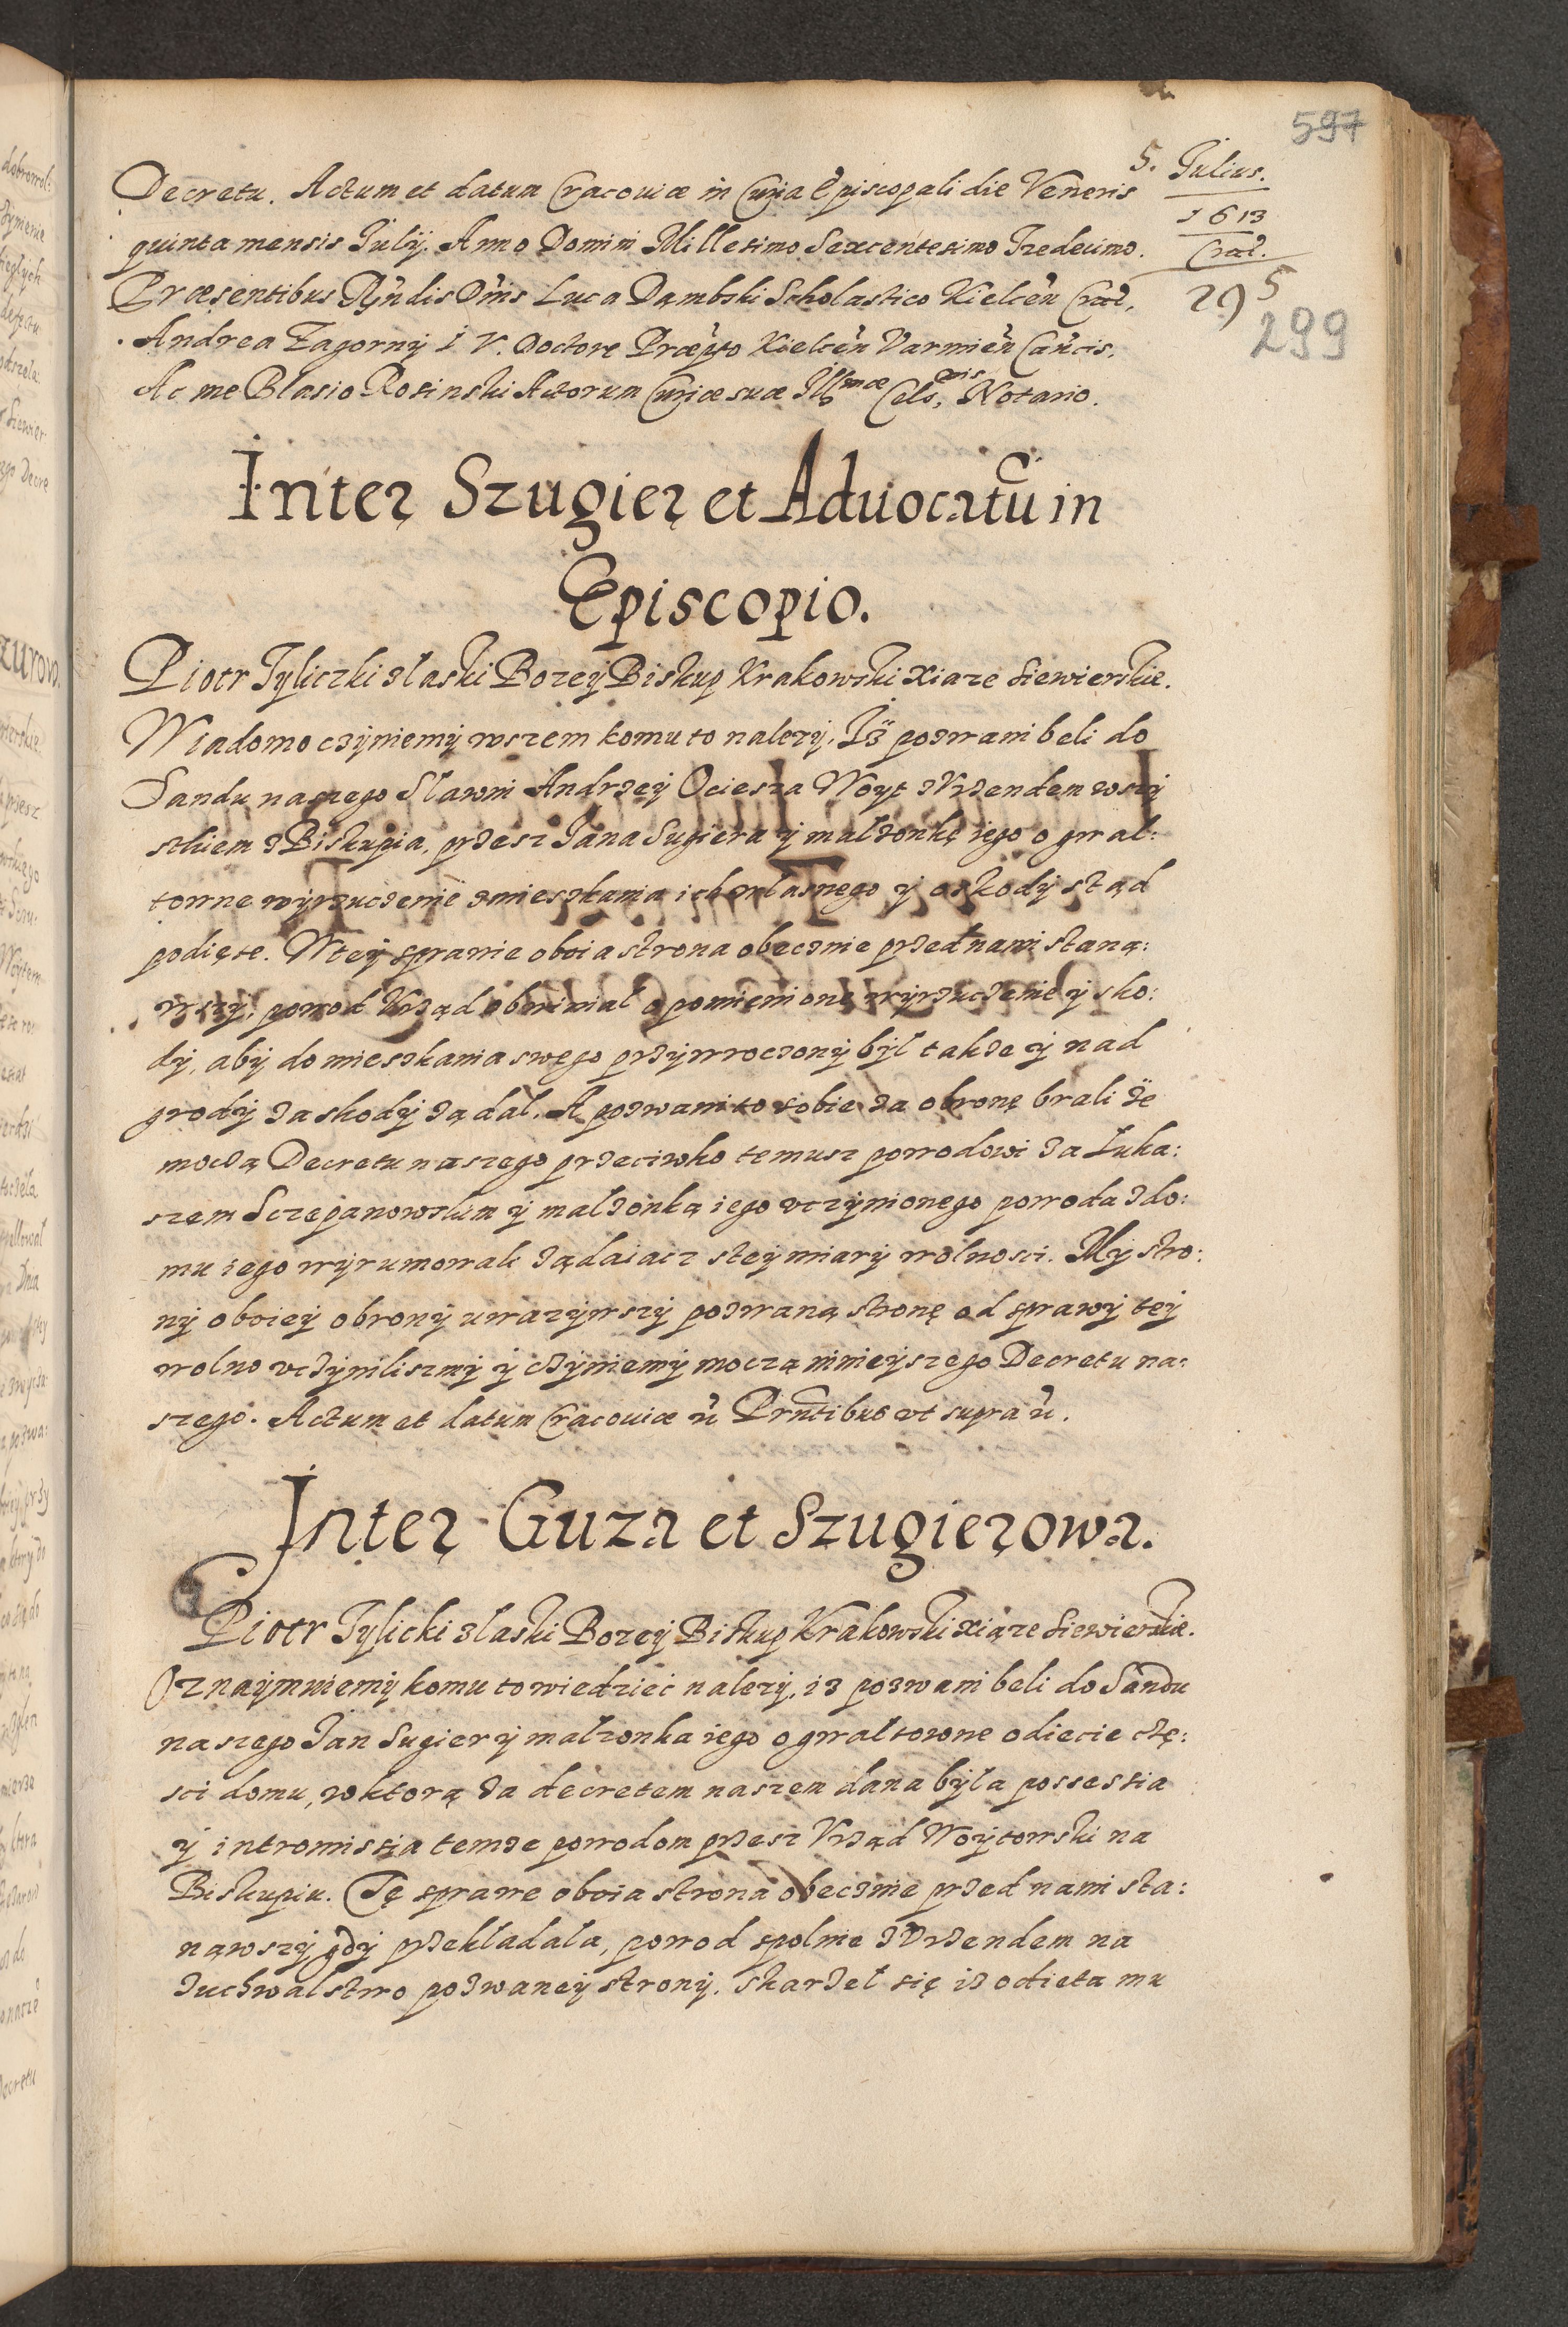 597
5. Julius.
1613
Crac̃.
295
299
Decretu. Actum et datum Cracouiæ in Curia Episcopali die Veneris
quinta mensis Julij. Anno Domini Millesimo Sexcentesimo Tredecimo.
Præsentibus Rn̄dis Dn̄is Luca Dąmbski Scholastico Kielceñ Crac̃.
Andrea Zagorny I V. Doctore Præpto Kielceñ Varmieñ Cañcis.
Ac me Blasio Rosinski Actorum Curiæ suæ Illmæ Cels. nis Notario.
Inter Szugier et Aduocatū in
Episcopio.
Piotr Tyliczki zlaski Bozey Biskup Krakowski Xiaze Siewierskie.
Wiadomo czyniemy wszem komu to nalezy. Iz pozwani beli do
Sandu naszego Slawni Andrzey Ociesza Woyt zVrzendem wszy
stkiem zBiskupia, przesz Jana Sugiera y malzonkę iego o gwal:
towne wyrzucenie zmieszkania ich wlasnego y oskody stąd
podięte. Wtey sprawie oboia strona obecznie przed nami staną:
wszy, powod Vrząd obwinial o pomienione wyrzucenie y sko:
dy, aby do mieszkania swego przywroczony byl takze y nad
grody za skody ządal. A pozwani to sobie za obronę brali ze
moczą Decretu naszego przeciwko temusz powodowi za Luka:
szem Sczepanowskim y malzonką iego vczynionego powoda zdo:
mu iego wyrumowali ządaiacz stey miary wolnosci. My stro:
ny oboiey obrony uwazywszy pozwaną stronę od sprawy tey
wolno vczyniliszmy y czyniemy moczą ninieyszego Decretu na:
szego. Actum et datum Cracouiæ ñ Prn̄tibus vt supra ñ.
Inter Guza et Szugierowa.
Piotr Tylicki zlaski Bozey Biskup Krakowski Xiąze Siewierskie.
Oznaymuiemy komu to wiedziec nalezy, iz pozwani beli do Sandu
naszego Jan Sugier y malzonka iego o gwaltowne odiecie czę:
sci domu, wktorą za decretem naszem dana byla possessia
y intromissia temze powodom przesz Vrząd Woytowski na
Biskupiu. Tę sprawe oboia strona obecznie przed nami sta:
nąwszy gdy przekladala, powod spolnie zVrzendem na
zuchwalstwo pozwaney strony. skarzel się iz odieta mu